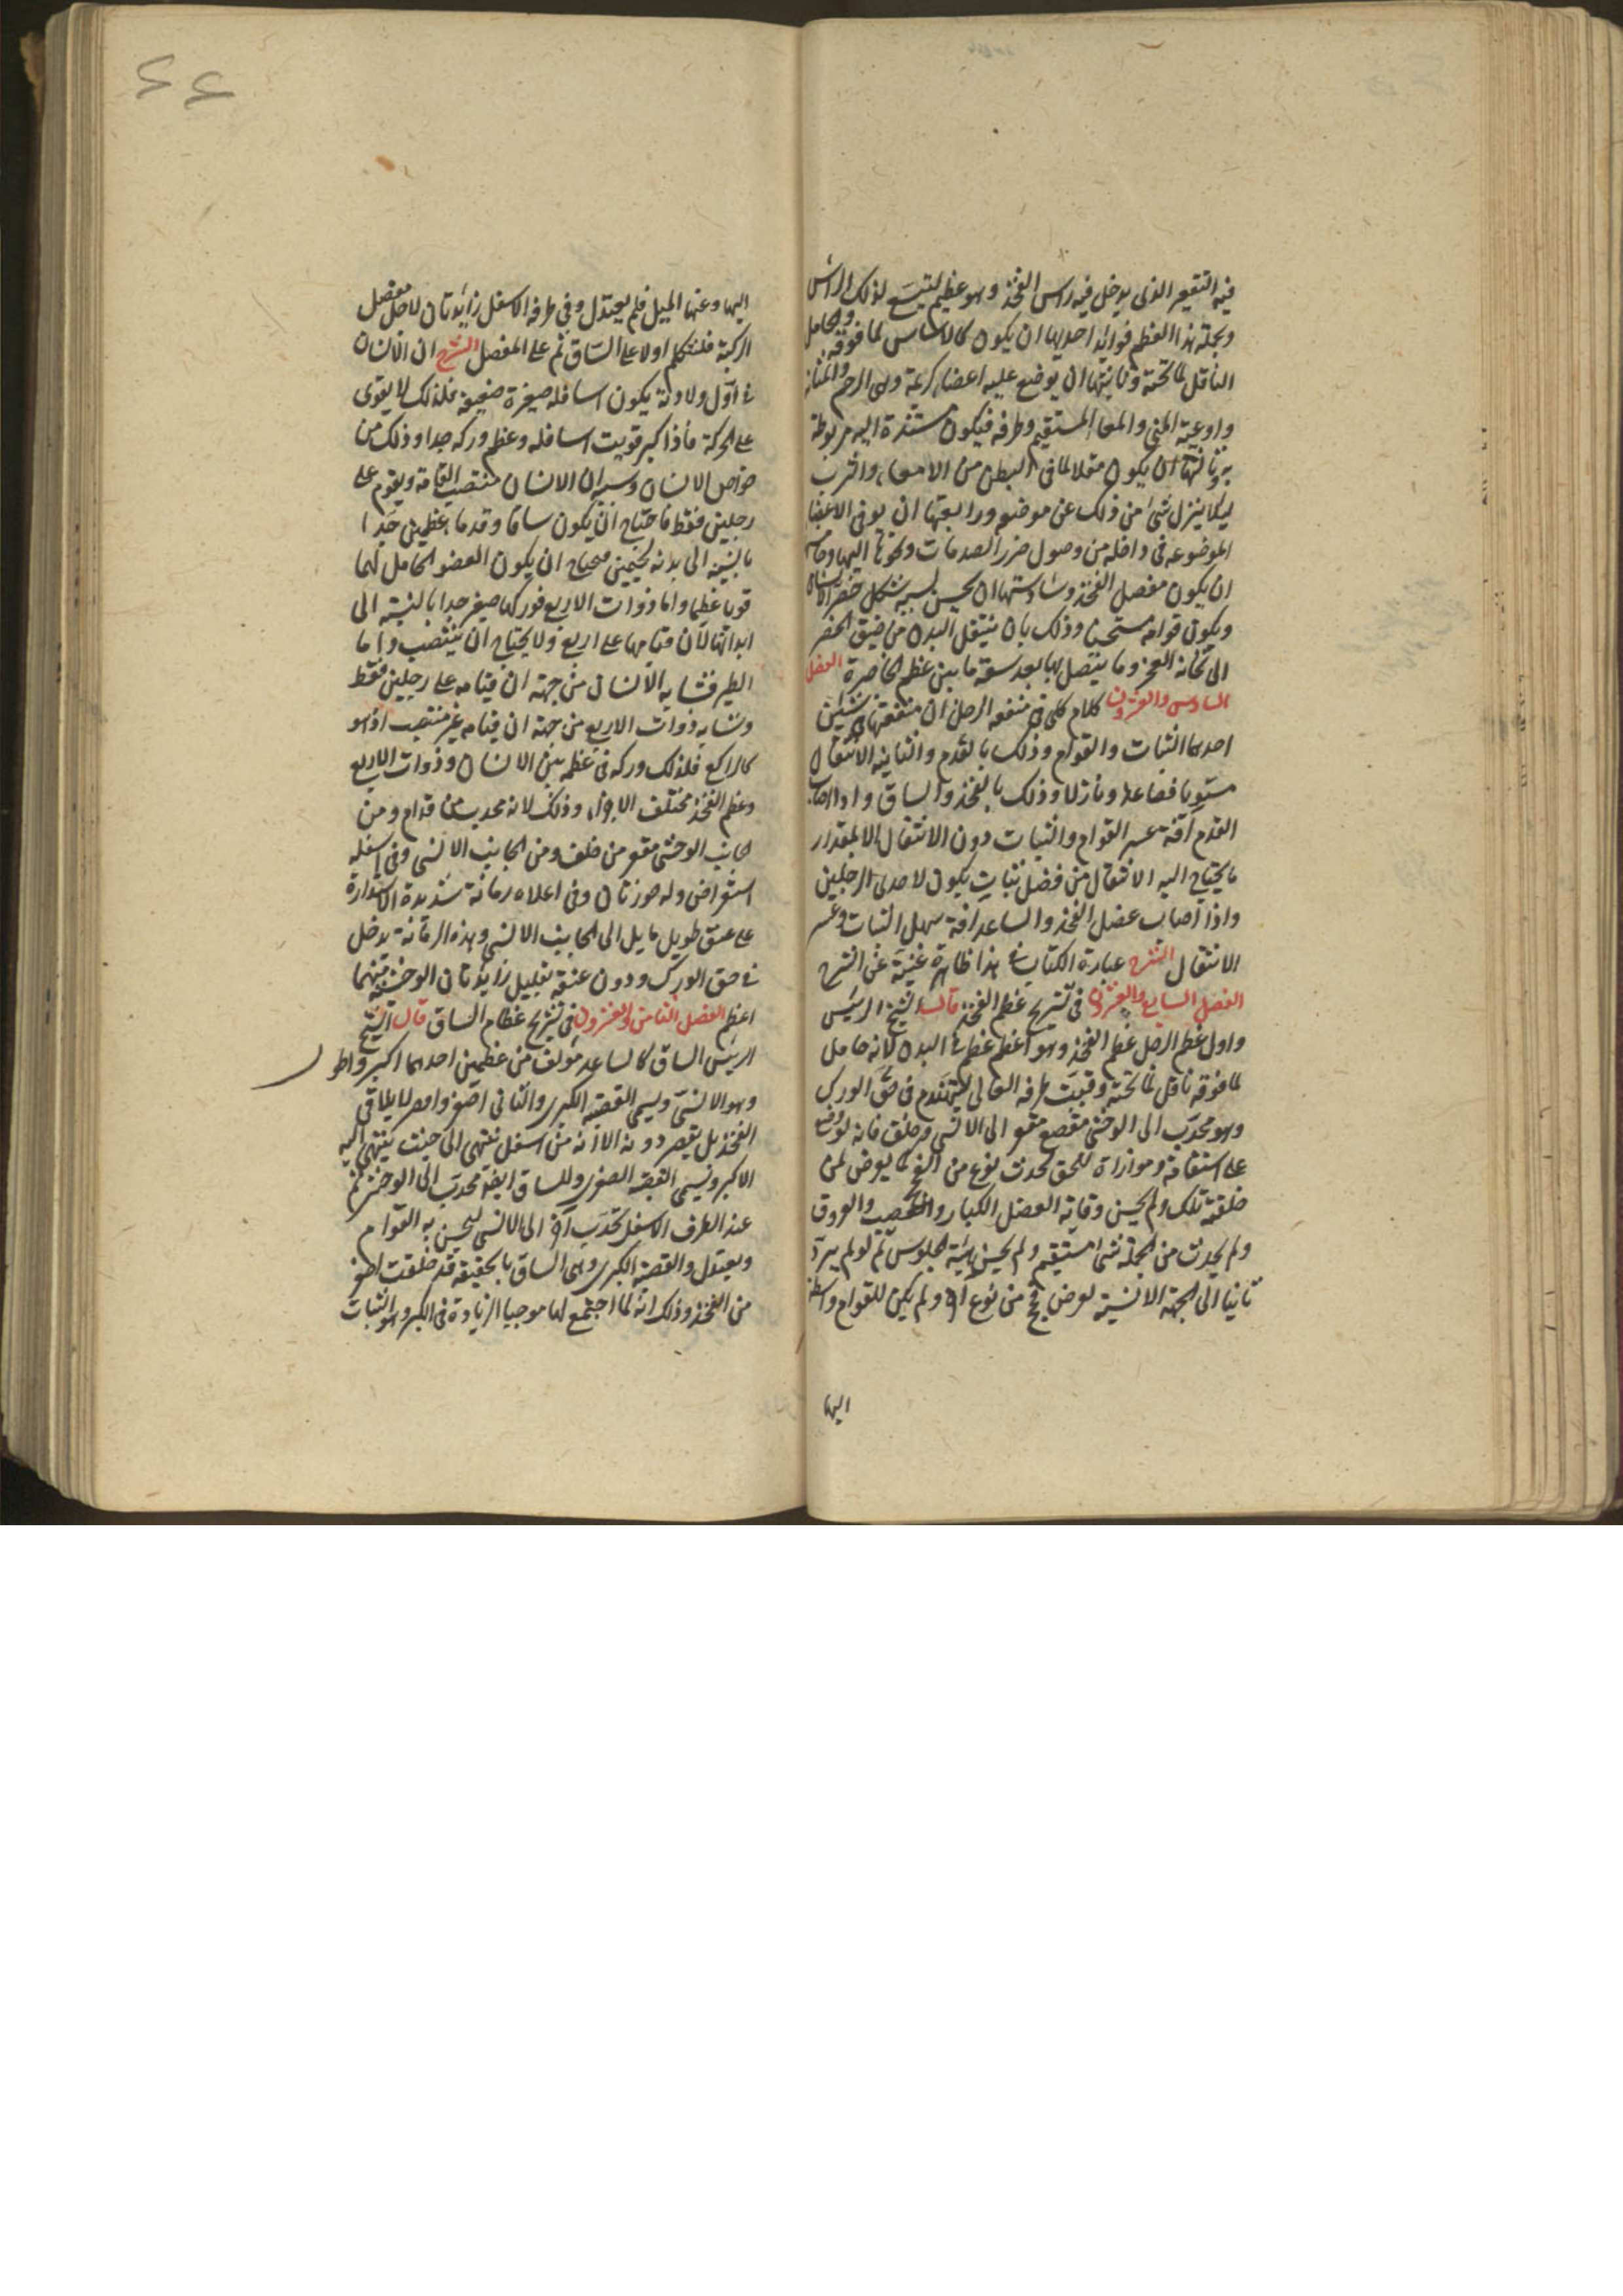 فيه التقعير الذى يدخل فيه راس الفخذ وهو عظيم ليتسع لذلك الراس
وبجملة هذا العظم فوائد احديها ان يكون كالاساس لما فوقه والحامل
الناقل لما تحته وثانيتها ان يوضع عليه اعضاء كريمة وهى الرحم والمثانة
واوعية المنى والمعا المستقيم وطرفه فيكون مستندة اليه مربوطة
به وثالثها ان يكون مقلا لما فى البطن من الامعاء والثرب
ليلا ينزل شئ من ذلك عن موضعه ورابعتها ان يوقى الاعضا
الموضوعه فى داخله من وصول ضرر الصدمات ونحوها اليها وخامسها
ان يكون مفصل الفخذ وسادستها ان يحسن بسببه شكل خصر الانسان
ويكون قوامه مستحسنا وذلك بان ينتقل البدن من ضيق الخصر
الى ثخانة العجز وما يتصل بها بعد سعة ما بين عظم الخاصرة الفصل
السادس والعشرون كلام كلى فى منفعة الرجل ان منفعتها فى شيئين
احدهما الثبات والقوام وذلك بالقدم والثانية الانتقال
مستويا وصاعدا ونازلا وذلك بالفخذ والساق واذا اصاب
القدم آفة عسر القوام والثبات دون الانتقال الا بمقدار
ما يحتاج اليه الانتقال من فضل ثبات يكون لاحدى الرجلين
واذا اصاب عضل الفخذ والساعد آفة سهل الثبات وعسر
الانتقال الشرح عبارة الكتاب فى هذا ظاهرة غنية عن الشرح
الفصل السابع والعشرون فى تشريح عظم الفخذ قال الشيخ الرئيس
واول عظم الرجل عظم الفخذ وهو اعظم عظم فى البدن لانه حامل
لما فوقه ناقل لما تحته وقبب طرفه العالى ليتهندم فى حق الورك
وهو محدب الى الوحشى مقصع مقعر الى الانسى وخلف فانه لو وضع
على استقامة وموازاة للحق لحدث نوع من الفحج كما يعرض لمن
خلقته تلك ولم يحسن وقايته العضل الكبار والعصب والعروق
ولم يحدث من الجملة شئ مستقيم ولم يحسن هيئة الجلوس ثم لو لم يرد
ثانيا الى الجهة الانسية لعرض فحج من نوع آخر ولم يكن للقوام واسطة
اليها
٤٤
اليها وعنها الميل فلم يعتدل وفى طرفه الاسفل زايدتان لاجل مفصل
الركبة فلنتكلم اولا على الساق ثم على المفصل الشرح ان الانسان
فى اول ولادته يكون اسافله صغيرة ضعيفة فلذلك لا يقوى
على الحركة فاذا كبر قويت اسافله وعظم وركه جدا وذلك من
خواص الانسان وسببه ان الانسان منتصب القامة ويقوم على
رجلين فقط فاحتاج ان يكون ساقا وقدما عظيمين جدا
بالنسبة الى بدنه لجسمين فيحتاج ان يكون العضو الحامل لهما
قويا عظيما واما ذوات الاربع فوركها صغير جدا بالنسبة الى
ابدانها لان قيامها على اربع ولا يحتاج ان ينتصب واما
الطير فتشابه الانسان من جهة ان قيامه على رجلين فقط
وتشابه ذوات الاربع من جهة ان قيامه غير منتصب اذ هو
كالراكع فلذلك وركه فى عظمه بين الانسان وذوات الاربع
وعظم الفخذ مختلف الاجزاء وذلك لانه محدب من قدام ومن
الجانب الوحشى مقعر من خلف ومن الجانب الانسى وفى اسفله
استعراض وله حوزتان وفى اعلاه رمانة شديدة الاستدارة
على عنق طويل مايل الى الجانب الانسى وهذه الرمانة يدخل
فى حق الورك ودون عنقه بقليل زايدتان الوحشية منهما
اعظم الفصل الثامن والعشرون فى تشريح عظام الساق قال الشيخ
الرئيس الساق كالساعد مؤلف من عظمين احدهما اكبر واطول
وهو الانسى ويسمى القصبة الكبرى والثانى اصغر واقصر لا يلاقى
الفخذ بل يقصر دونه الا انه من اسفل ينتهى الى حيث ينتهى اليه
الاكبر ويسمى القصبة الصغرى وللساق ايضا تحدب الى الوحشى ثم
عند الطرف الاسفل تحدب آخر الى الانسى ليحسن به القوام
ويعتدل والقصبة الكبرى وهى الساق بالحقيقة قد خلقت اصغر
من الفخذ وذلك انه لما اجتمع لها موجبا الزيادة فى الكبر وهو الثبات